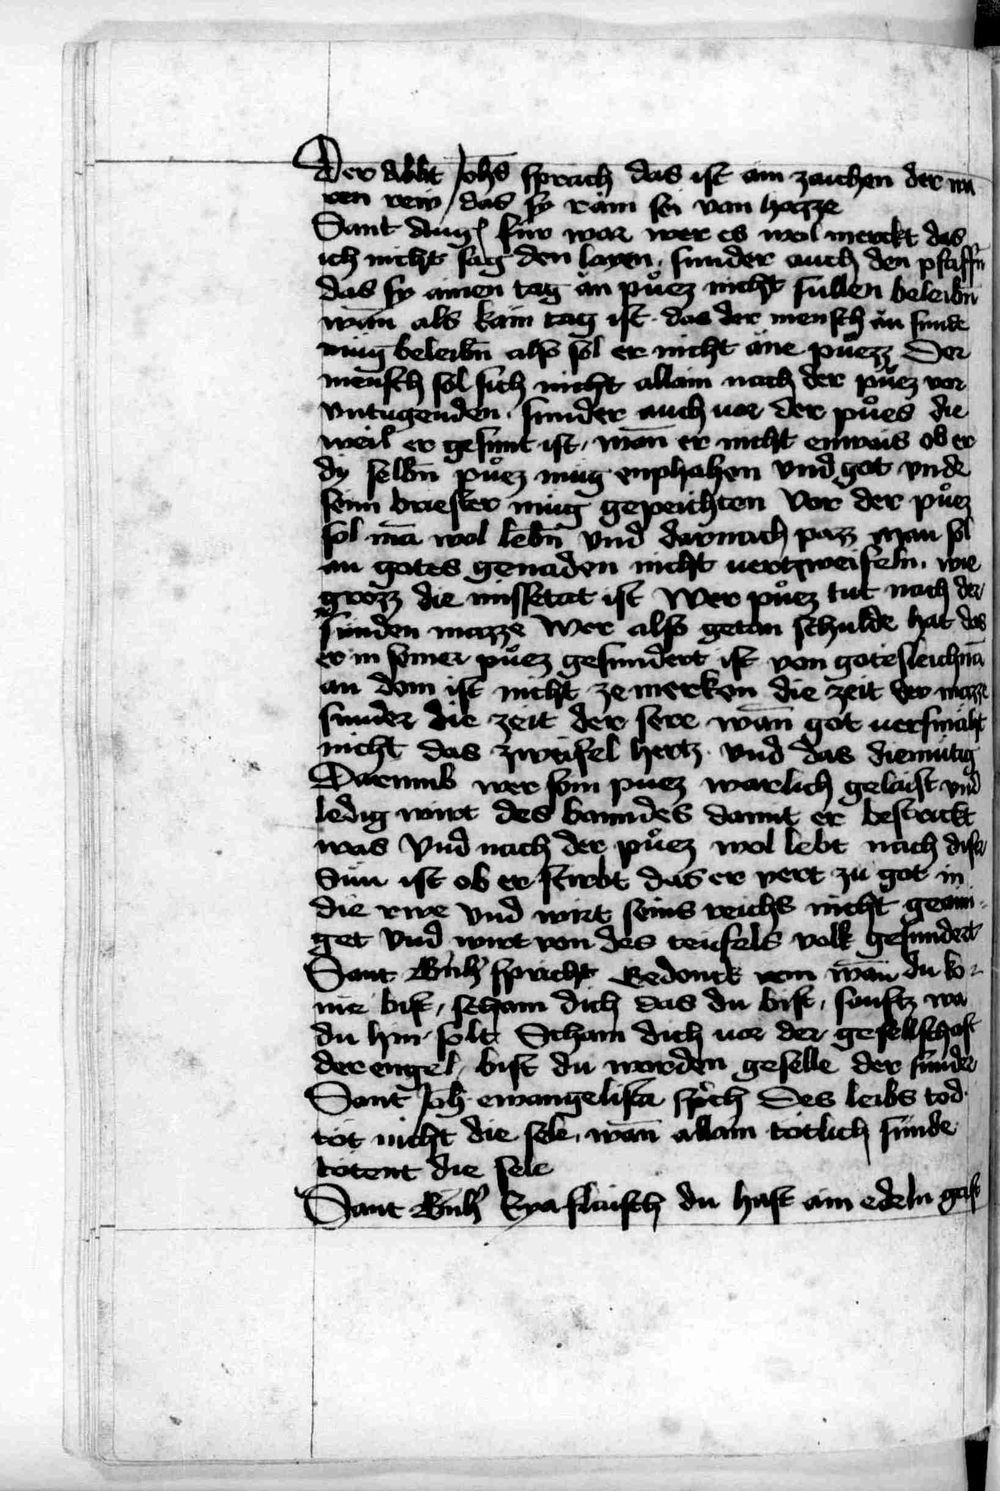 Der Abbt Joh̄s sprach das ist ain zaichen der wa
ren rew / das sy rain sei van hazze
Sant Aug fürwar wer es wol merckt das
ich nicht sag den layen sunder auch den pfaffn̄
das sy ainen tag an půez nicht sullen beleibn̄
wān als kain tag ist das der mensch an sunde
müg beleibn̄ also sol er nicht ane půezz Der
mensch sol sich nicht allain nach der půez vor
vntugenden sunder auch vor der půes die
weil er gesunt ist, wān er nicht enwais ob er
dy selbn̄ půez mug enphahen vnd got vnde
seim briester müg gepeichten Vor der půez
sol mā wol lebn̄ Vnd darnach pazz Man sol
an gotes genaden nicht uertzweifeln wie
grozz die missetat ist Wer půez tut nach der
sunden mazze Wer also getan schulde hat das
er in seiner půez gesundert ist von gotesleichnā
an dem ist nicht ze merken die zeit der mazze
sunder die zeit der sere wān got uersmäht
nicht das zweifel hertz Vnd das diemütig
Darumb wer sein puez warlich gelaist vnd
ledig wirt des banndes damit er bestrickt
was Vnd nach der půez wol lebt nach diser
Sün ist ob er stirbt das er vert zu got in
die rwe Vnd wirt seins reichs nicht geaini
get Vnd wirt von des teufels volk gesundert
Sant Bnh' spricht Gedenck von wān du ko
me bist, scham dich das du bist, seufftz wa
du hin solt Scham dich uor der gesellschaft
der engel, bist du worden geselle der sunder
Sant Joh̄ ewangelista sprch Des leibs tod
töt nicht die sele, wān allain tötlich sünde
tötent die sele
Sant Bnh' Eya flaisch du hast ain edeln gast